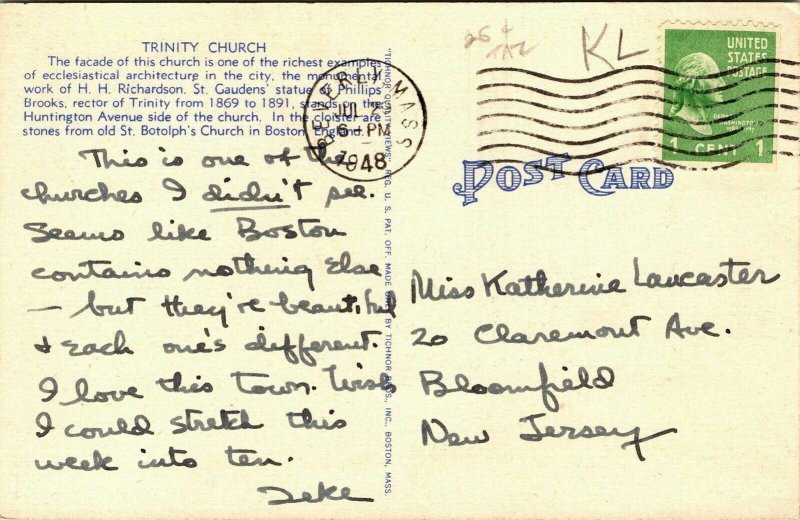 TRINITY CHURCH
The facade of this church is one of the richest examples
of ecclesiastical architecture in the city, the monumental
work of H. H. Richardson. St. Gaudens' statue of Phillips
Brooks, rector of Trinity from 1869 to 1891, stands on the
Huntington Avenue side of the church. In the cloister are
stones from old St. Botolph's Church in Boston, England.
This is one of the
churches I didn't see.
Seems like Boston
contains nothing else
— but they're beautiful
& each one's different.
I love this town. Wish
I could stretch this
week into ten.
Zeke
"TICHNOR QUALITY VIEWS" REG. U. S. PAT. OFF. MADE ONLY BY TICHNOR BROS., INC., BOSTON, MASS.
BEVERLY MASS
JUL 2
6 - PM
1948
25¢
KL
UNITED
STATES
POSTAGE
1 CENT 1
POST CARD
Miss Katherine Lancaster
20 Claremont Ave.
Bloomfield
New Jersey